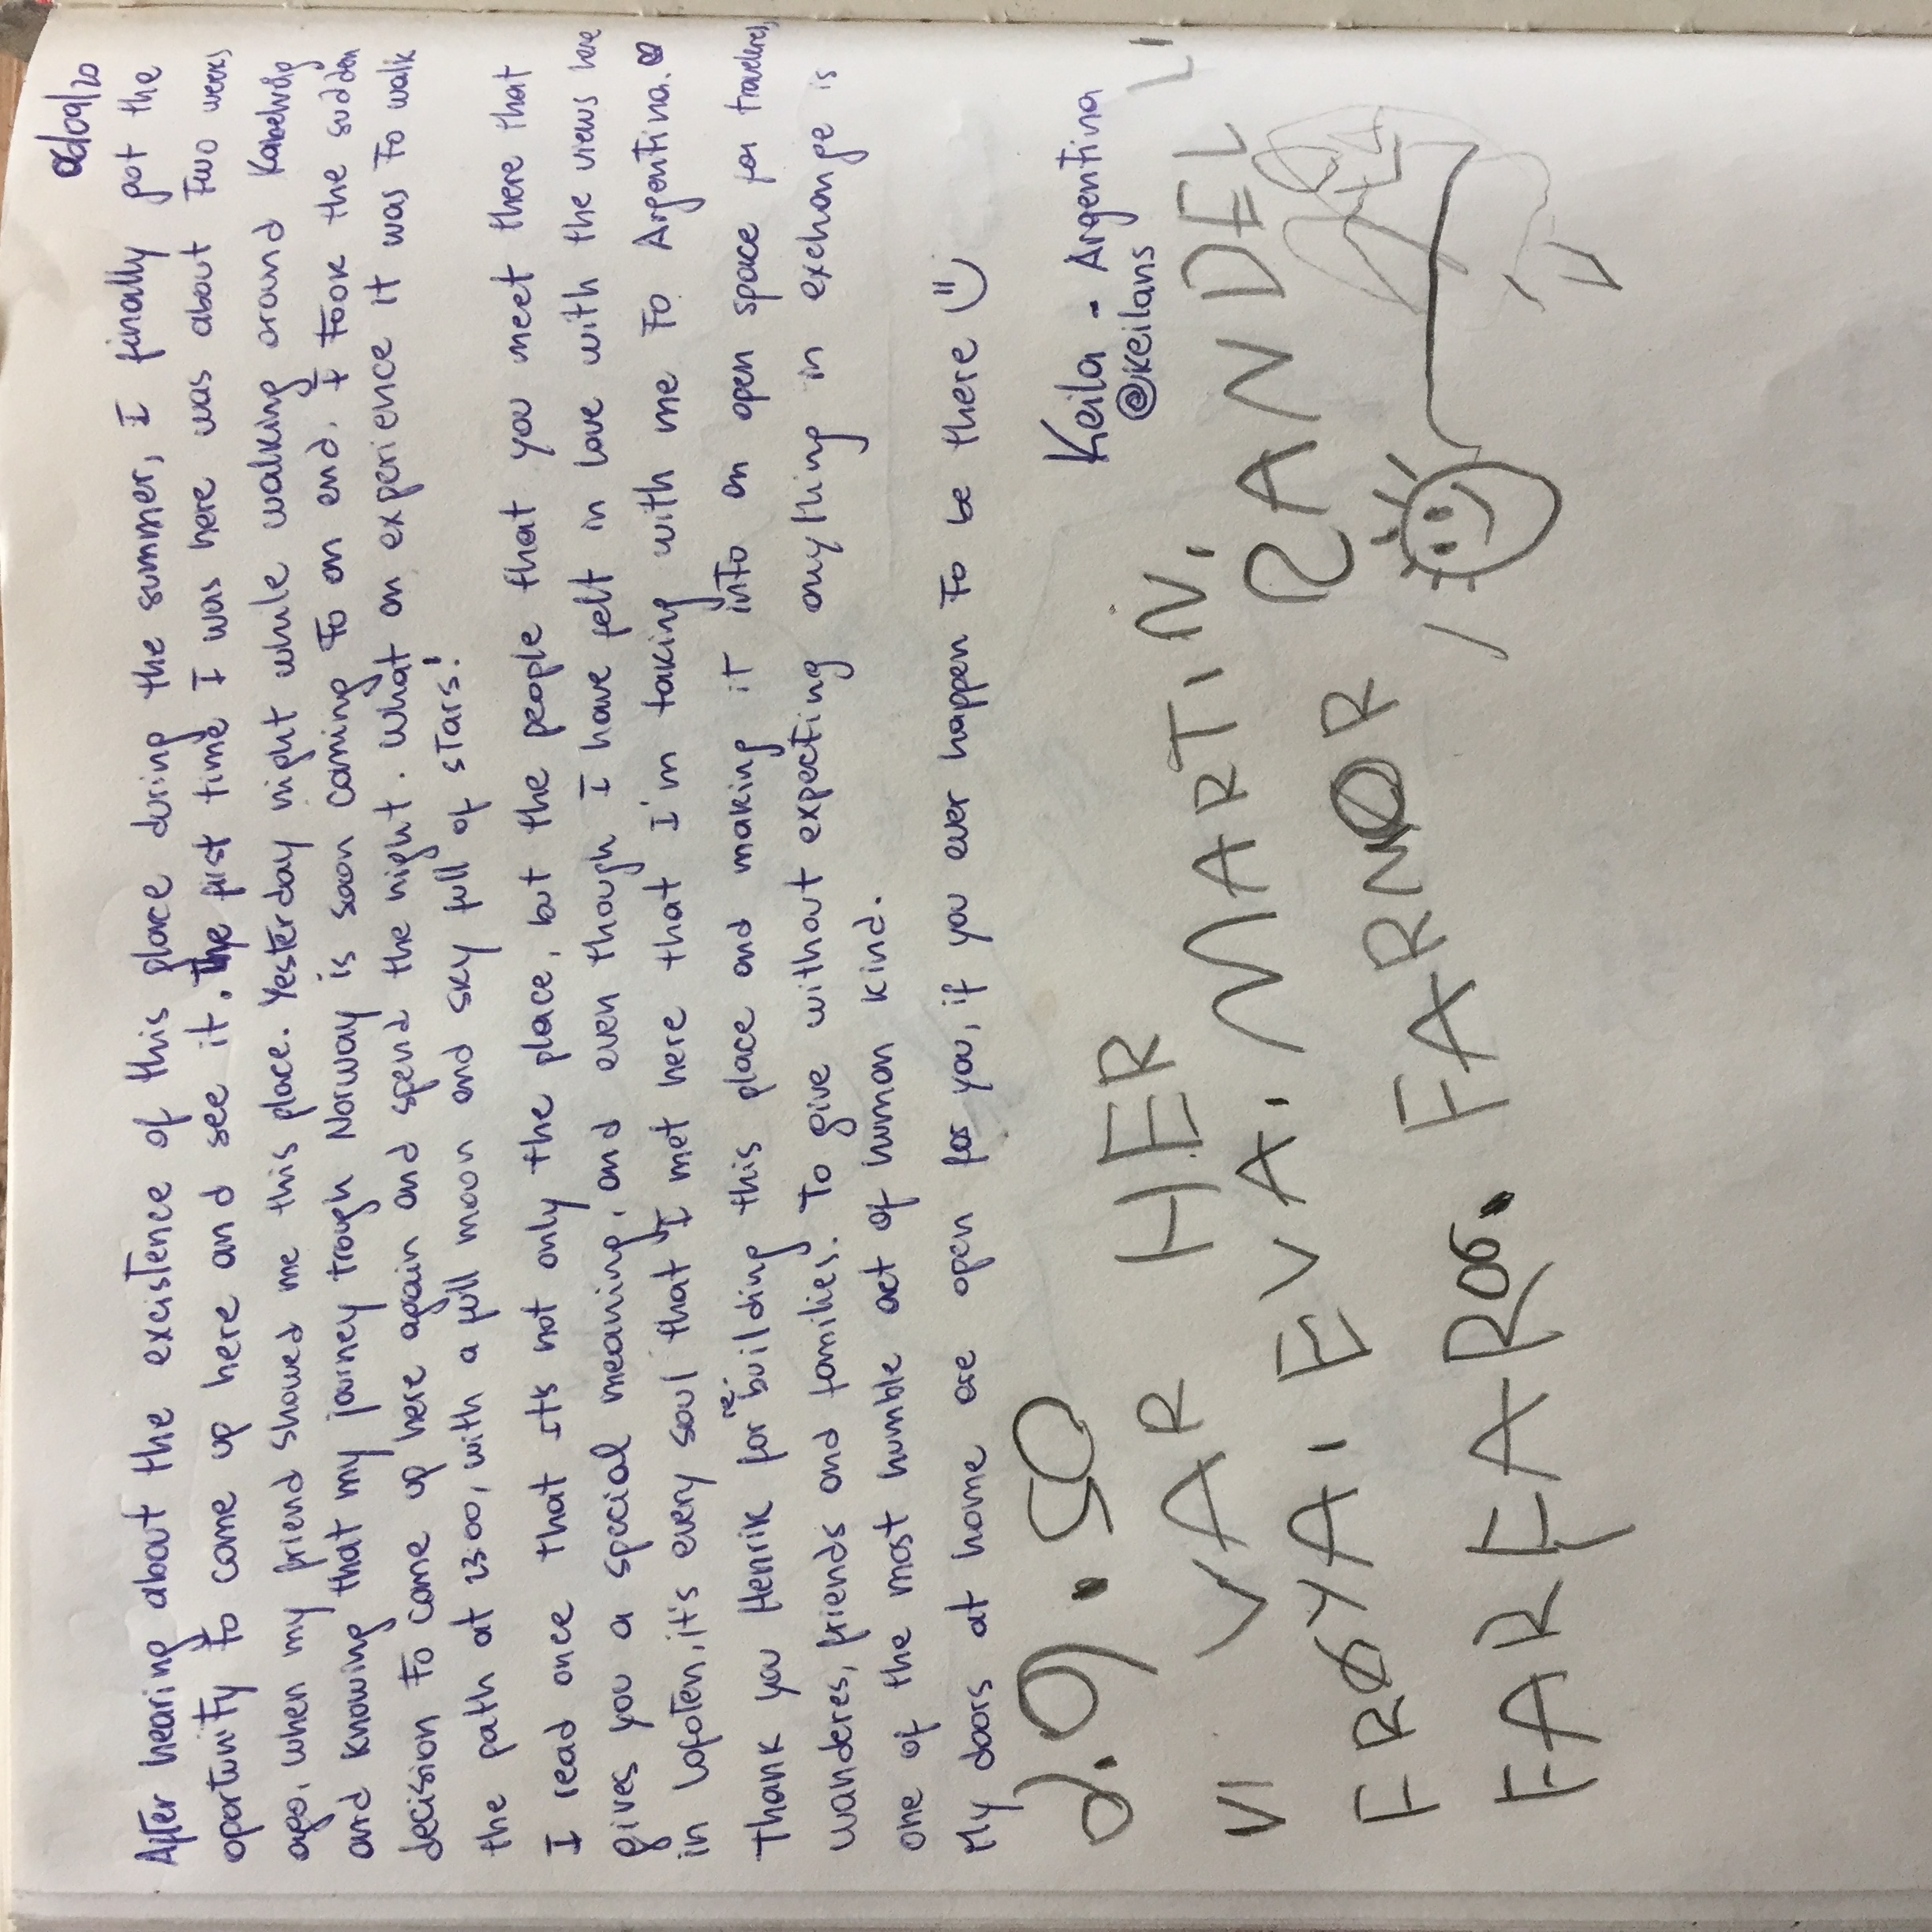 06/09/20
After hearing about the excistence of this place during the summer, I finally got the
oportunity to come up here and see it. The first time I was here was about two weeks
ago, when my friend showed me this place. Yesterday night while walking around Kabelvåg
and knowing that my journey trough Norway is soon coming to an end, I took the sudden
decision to come up here again and spend the night. What an experience it was to walk
the path at 23:00, with a full moon and sky full of stars!
I read once that it's not only the place, but the people that you meet there that
gives you a special meaning, and even though I have felt in love with the views here
in Lofoten, it's every soul that I met here that I'm taking with me to Argentina.
Thank you Henrik for re-building this place and making it into an open space for travelers,
wanderes, friends and families. To give without expecting anything in exchange is
one of the most humble act of human kind.
My doors at home are open for you, if you ever happen to be there
Keila - Argentina
@keilans
VI VAR HER
FRØYA, EVA, MARTIN,
FARFAR OG FARMOR, SANDEL